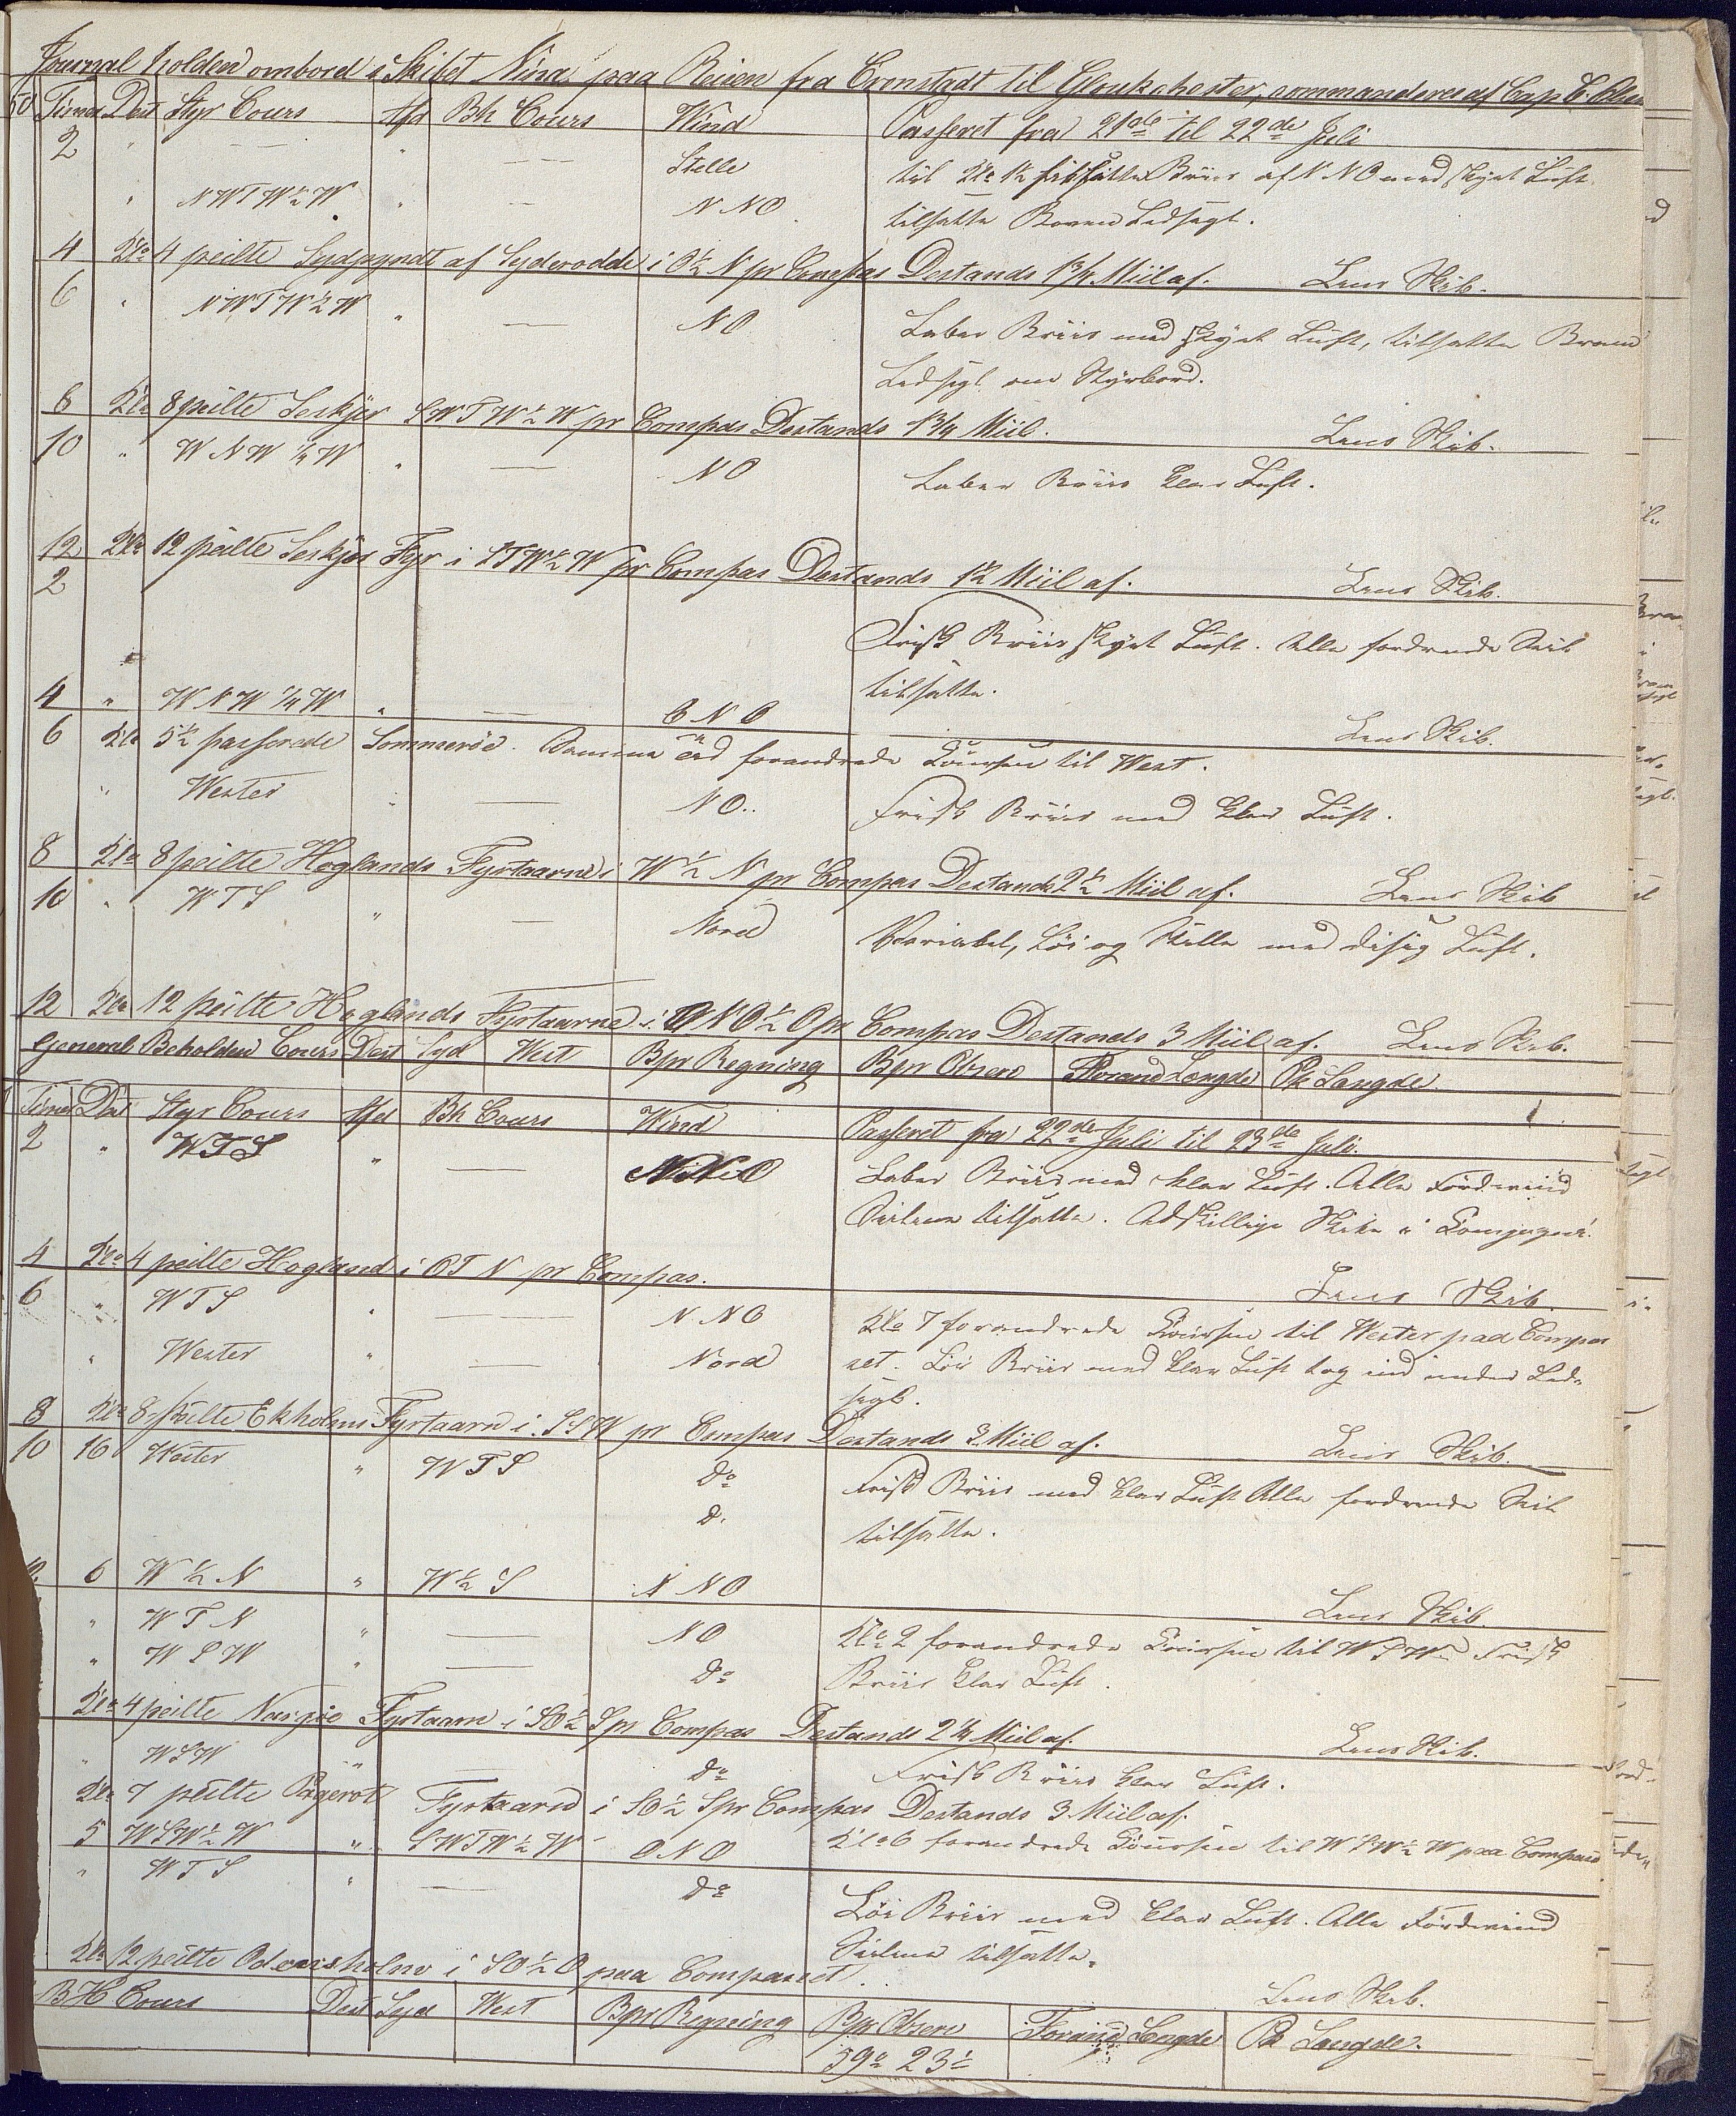 Journal holden ombord i Skibet Nina paa Reisen fra Cronstadt til Glukchester, commanderes af Cap C.
Timer Dist Styr Cours Afd Bh Cours Wind Passeret fra 21de til 22de Juli
2 " — " — Stelle til Klo 1½ Briis af NNO med skyet Luft
" NWTW½W " — NNO tilsatte Boven Ledsegl.
4 Klo 4 peilte Sydpyndt af Syderodde i O½N pr Compas Destands 1¾ Miil af. Lens Skib.
6 " NWTW½W " — NO Laber Briis med skyet Luft, tilsatte Bram
Ledsegl om Styrbord.
8 Klo 8 peilte Seskjær SWTW½W pr Compas Destands 1¾ Miil. Lens Skib.
10 " WNW¼W " — NO Laber Briis klar Luft.
12 Klo 12 peilte Seskjær Fyr i STW½W pr Compas Destands 1½ Miil af. Lens Skib.
2
Frisk Briis skyet Luft. Alle fordrende Seil
4 " WNW¼W " — ONO tilsatte. Lens Skib.
6 Klo 5½ passerede Sommerøe. Samme Tid forandrede Coursen til West.
" Wester " — NO.. Frisk Briis med klar Luft.
8 Klo 8 peilte Hoglands Fyrtaarne i W½N pr Compas Destands 2½ Miil af. Lens Skib
10 " WTS " — Nord Variabel, Löi og Stille med disig Luft.
12 Klo 12 peilte Hoglands Fyrtaarne i ONO½O pr Compas Destands 3 Miil af. Lens Skib.
General Beholden Cours Dest Syd West Bpr Regning Bpr Observ Forand Længde Pk Længde
Timer Dist Styr Cours Afd Bh Cours Wind Passeret fra 22de Juli til 23de Juli.
2 " WTS " — NNO Laber Briis med klar Luft. Alle Fordevind
Seilene tilsatte. Adskillige Skibe i Compagnie.
4 Klo 4 peilte Hogland i OTN pr Compas. Lens Skib.
6 " WTS " — NNO Klo 7 forandrede Coursen til Wester paa Compas
" Wester " — Nord set. Löi Briis med klar Luft tog ind under Led-
segl.
8 Klo 8 peilte Ekholms Fyrtaarn i SSW pr Compas Destands 3 Miil af. Lens Skib.
10 16 Wester " WTS do Frisk Briis med klar Luft Alle fordrende Seil
d. tilsatte.
12 6 W½N " W½S NNO Lens Skib.
" WTN " — NO Klo 2 forandrede Coursen til WSW Frisk
" WSW " — do Briis klar Luft.
Klo 4 peilte Nargøe Fyrtaarn i SO½S pr Compas Destands 2¼ Miil af. Lens Skib.
" WSW " — do Frisk Briis klar Luft.
Klo 7 peilte Fyrtaarn i SO½S pr Compas Destands 3 Miil af.
5 WSW½W " SWTW½W ONO Klo 6 forandrede Coursen til WSW½W paa Compas
" WTS " — do
Löi Briis med klar Luft. Alle Fordevind
Seilene tilsatte.
Klo 12 peilte Odensholm i SO½O paa Compasset. Lens Skib.
BH Cours Dest Syd West Bpr Regning Bpr Observ Forand Længde Pk Længde.
59° 23'